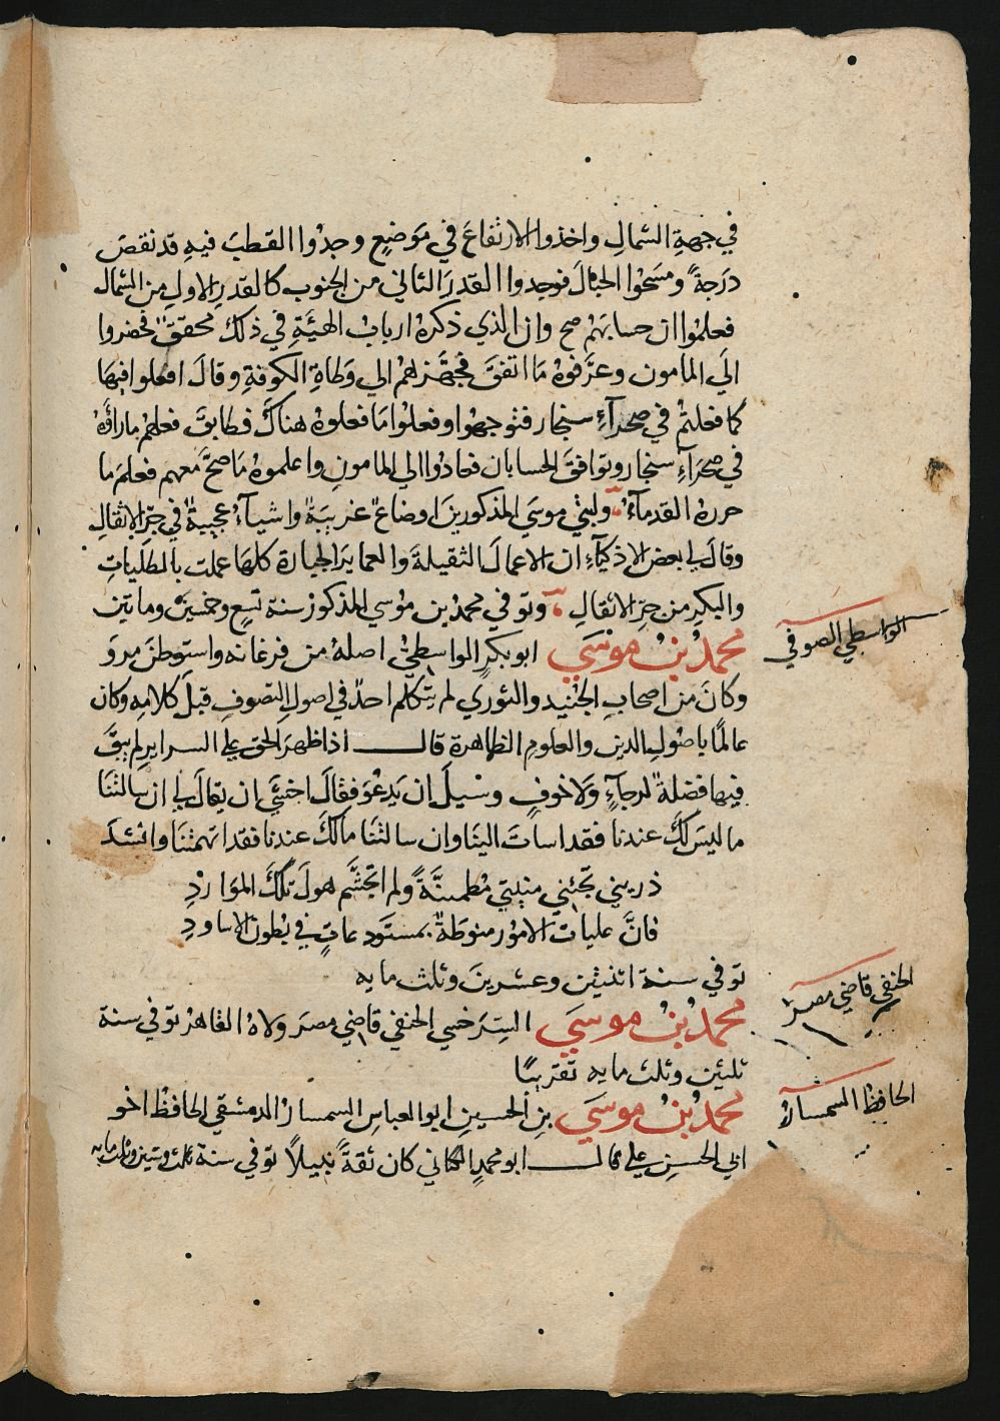 في جهةِ الشمالِ واخذوا الارتفاعَ في مَوضعٍ وجدُوا القطبَ فيهِ قد نقصَ
درَجةً ومسَحُوا الحبالَ فوجدوا القدرَ الثاني من الجنوب كالقدرِ الاولِ من الشمال
فعلمُوا ان حسابهُم صح وان الذي ذكرهُ اربابُ الهيئَةِ في ذلكَ محققٌ فحضروا
الَي المامون وعرَّفوهُ مَا اتفقَ فجهَّزهُم الي وَطاةِ الكوفةِ وقالَ افعلوا فيهَا
كما فعلتُم في صحرآءِ سنجار فتوجهُوا وفعلُوا مَا فعلوهُ هناكَ فطابقَ فعلهُم مارأَوهُ
في صحرَآءِ سنجار وتوافقَ الحسابان فعادُوا الي المامونِ واعلموهُ مَا صحَّ معهم فعلمَ ما
حررهُ القدمآءُ ولبني موسَي المذكورينَ اوضاعٌ غريبَةٌ واشيآءُ عجيبةٌ في جرّ الاثقالِ
وقالَ لي بعضُ الاذكيآءِ ان الاعمالَ الثقيلةَ والعمايرَ الجبارة كلهَا عملت بالمطلَباتِ
والبكرِ من جرّ الاثقالِ وتوفي محمدُ بن مُوسي المذكور سنة تسعٍ وخمسينَ ومايتين
الواسطي الصوفي
محمدُ بنُ موسَي ابو بكرٍ الواسطيُّ اصلهُ من فرغانه واستوطنَ مروَ
وكانَ من اصحابِ الجُنيد والنوري لم يتكلم احدٌ في اصولِ التصوفِ قبلَ كلامهِ وكان
عالمًا باصُولِ الدين والعلومِ الظاهرة قال اذا ظهرَ الحق علي السرايرِ لم يبقَ
فيها فضلةٌ لرجآءٍ وَلا خوفٍ وسُيلَ ان يَدعُوَ فقالَ اخشَي ان يقالَ لي ان سالتَنَا
ما ليسَ لكَ عندنا فقد اساتَ الينَا وان سالتنَا مالكَ عندنا فقد اتهمتنَا وانشدَ
ذريني تجئني منيتي مُطمئنَّةً ولم اتجشَّم هولَ تلكَ المَوَاردِ
فانَّ علياتَ الامُور منوطَةٌ بمستَودعاتٍ في بُطون الاساودِ
توفي سنة اثنيتن وعشرينَ وثلث مايه
الحنفي قاضي مصر
محمدُ بنُ موسَي السّرَخسي الحنفي قاضي مصرَ ولاهُ القاهرُ توفي سنة
ثلثين وثلث مايه تقريبًا
الحافظ السمسار
محمدُ بنُ موسَي بنِ الحسينِ ابو العباسِ السمسارُ الدمشقي الحافظُ اخو
ابي الحسنِ علي قال ابو محمدٍ الكتاني كان ثقةً نبيلًا توفي سنة ثلث وستين وثلث مايه